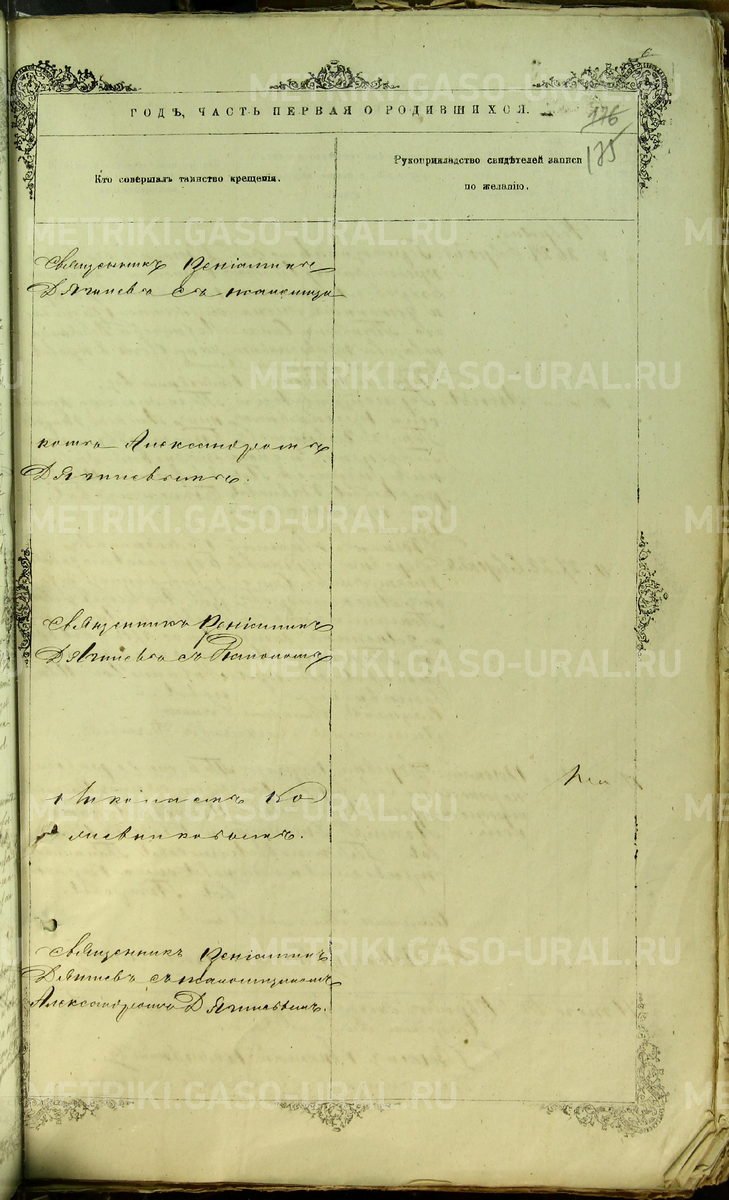 ГОДЪ, ЧАСТЬ ПЕРВАЯ О РОДИВШИХСЯ.
176
175
Кто совершалъ таинство крещенія.
Рукоприкладство свидѣтелей записи
по желанію.
Священникъ Веніаминъ
Дягилевъ съ псаломщи
комъ Александромъ
Дягилевымъ.
Священникъ Веніаминъ
Дягилевъ съ
Николаемъ Ко
Священникъ Веніаминъ
Дягилевъ съ псаломщикомъ
Александромъ Дягилевымъ.
METRIKI.GASO-URAL.RU